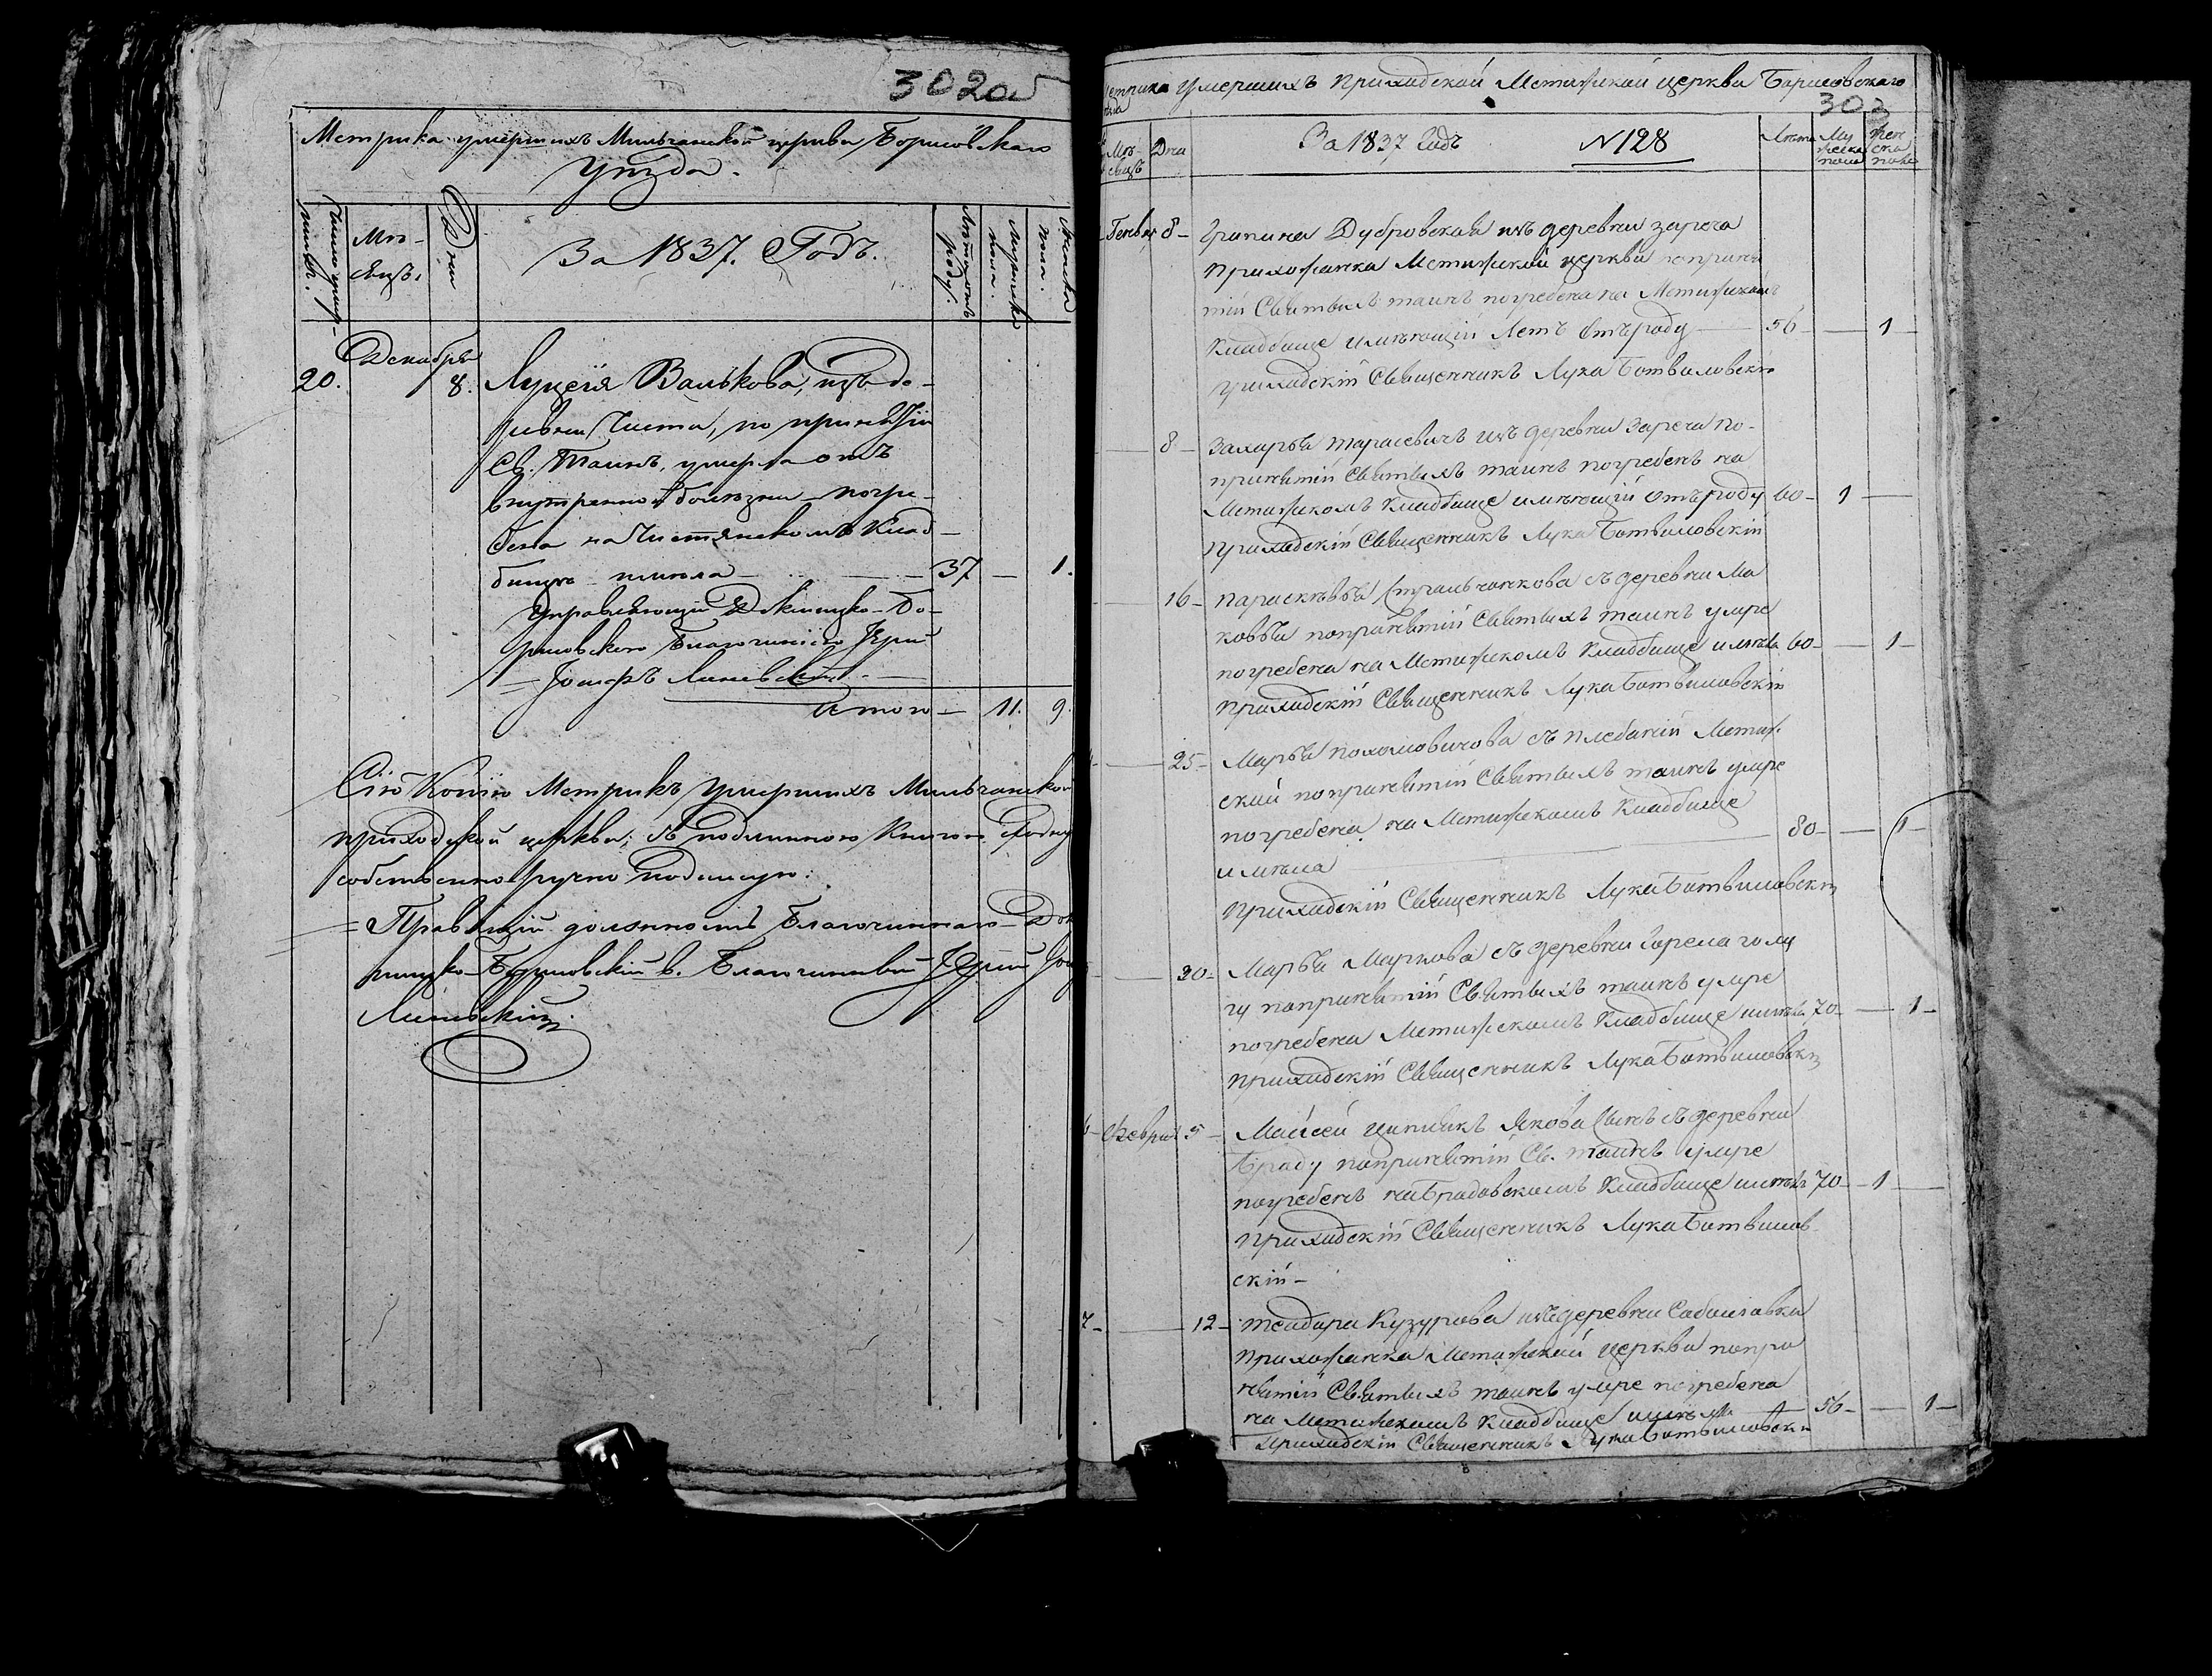 302об
Метрика умершихъ Мильчанской церкви Борисовскаго
Уѣзда.
Число умер-
шихъ.
Мѣ-
сяцъ.
Дни
За 1837. Годъ.
Мужеска
пола.
Женска
пола.
Декабря
20. 8. Луцея Валькова, изъ де-
ревни Чиста, по принятіи
Св. Таинъ, умерла отъ
внутренной болѣзни погре-
бена на Чистянскомъ Клад-
бищѣ имѣла 37 — 1.
Управляющій Докшицко-Бо-
рисовскаго Благочинія Іерей
Іосифъ Линевскій
Итого — 11. 9.
Сію Копію Метрикъ Умершихъ Мильчанской
приходской церкви; съ подлинною Книгою сходну
собственноручно подписую:
Правящій должность Благочиннаго Док
шицко-Борисовскій в. Благочинный Іерей
Линевскій
Метрика Умершихъ Приходской Метижской церкви Борисовскаго
303
Мѣ-
сяцъ
Дни
За 1837 Годъ
N 128
Лѣта
Му
жеска
пола
Жен
ска
пола
Генваря 8 — Грипина Дубровская изъ деревни зареча
Прихожанка Метижской церкви по приня
тіи Святыхъ таинъ погребена на Метижскомъ
Кладбище имѣющій Летъ отъ роду — 56 — 1
Приходскій Священникъ Лука Ботвиловскій
8 — Захарья тарасевичъ изъ деревни Зареча по-
принятіи Святыхъ таинъ погребенъ на
Метижскомъ Кладбище имѣющій отъ роду 60 — 1 —
Приходскій Священникъ Лука Ботвиловскій
16 — Параскѣвья Стральчонкова съ деревни Ма
ковья попринятіи Святыхъ таинъ умре
погребена на Метижскомъ Кладбище имѣла 60 — 1 —
Приходскій Священникъ Лука Ботвиловскій
25 — Марья Пахомовичова съ плебаніи Метиж
ской попринятіи Святыхъ таинъ умре
погребена на Метижскомъ Кладбище
имѣла — 80 — 1 —
Приходскій Священникъ Лука Ботвиловскій
30 — Марья Маркова съ деревни
гу попринятіи Святыхъ таинъ умре
погребена Метижскомъ Кладбище имѣла 70 — 1 —
Приходскій Священникъ Лука Ботвиловскій
6 — Февраля 5 — Маисей Цыпликъ Якова Сынъ съ деревни
Броду попринятіи Св. таинъ умре
погребенъ на Бродовскомъ Кладбище имѣлъ 70 — 1 —
Приходскій Священникъ Лука Ботвилов
скій —
7 — 12 — теадора Кузурова изъ деревни
Прихожанка Метижской церкви попри
нятіи Святыхъ таинъ умре погребена
на Метижскомъ Кладбище имѣла — 56 — 1 —
Приходскій Священникъ Лука Ботвиловскій